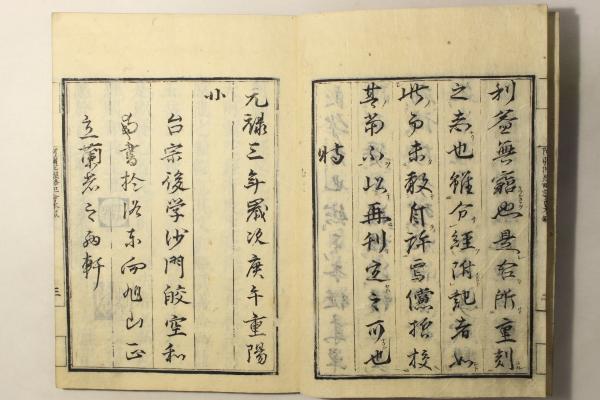 利益無窮也是吾所重刻
之志也雖分經附記者如
此而未敢自許焉儻揩校
其當不必再刊定之可也
時
元祿三年歲次庚午重陽
日
台宗後学沙門皎空和
南書於洛東向旭山正
立蘭若之南軒
三